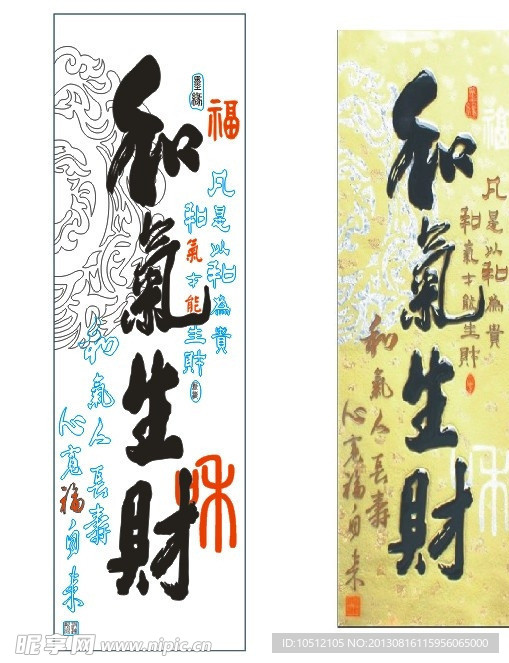 和氣生財
墨缘
福
凡是以和為貴
和氣才能生財
和氣人長壽
心寬福自来
和
和氣生財
福
凡是以和為貴
和氣才能生財
和氣人長壽
心寬福自来
和
昵享网 www.nipic.cn
ID:10512105 NO:20130816115956065000